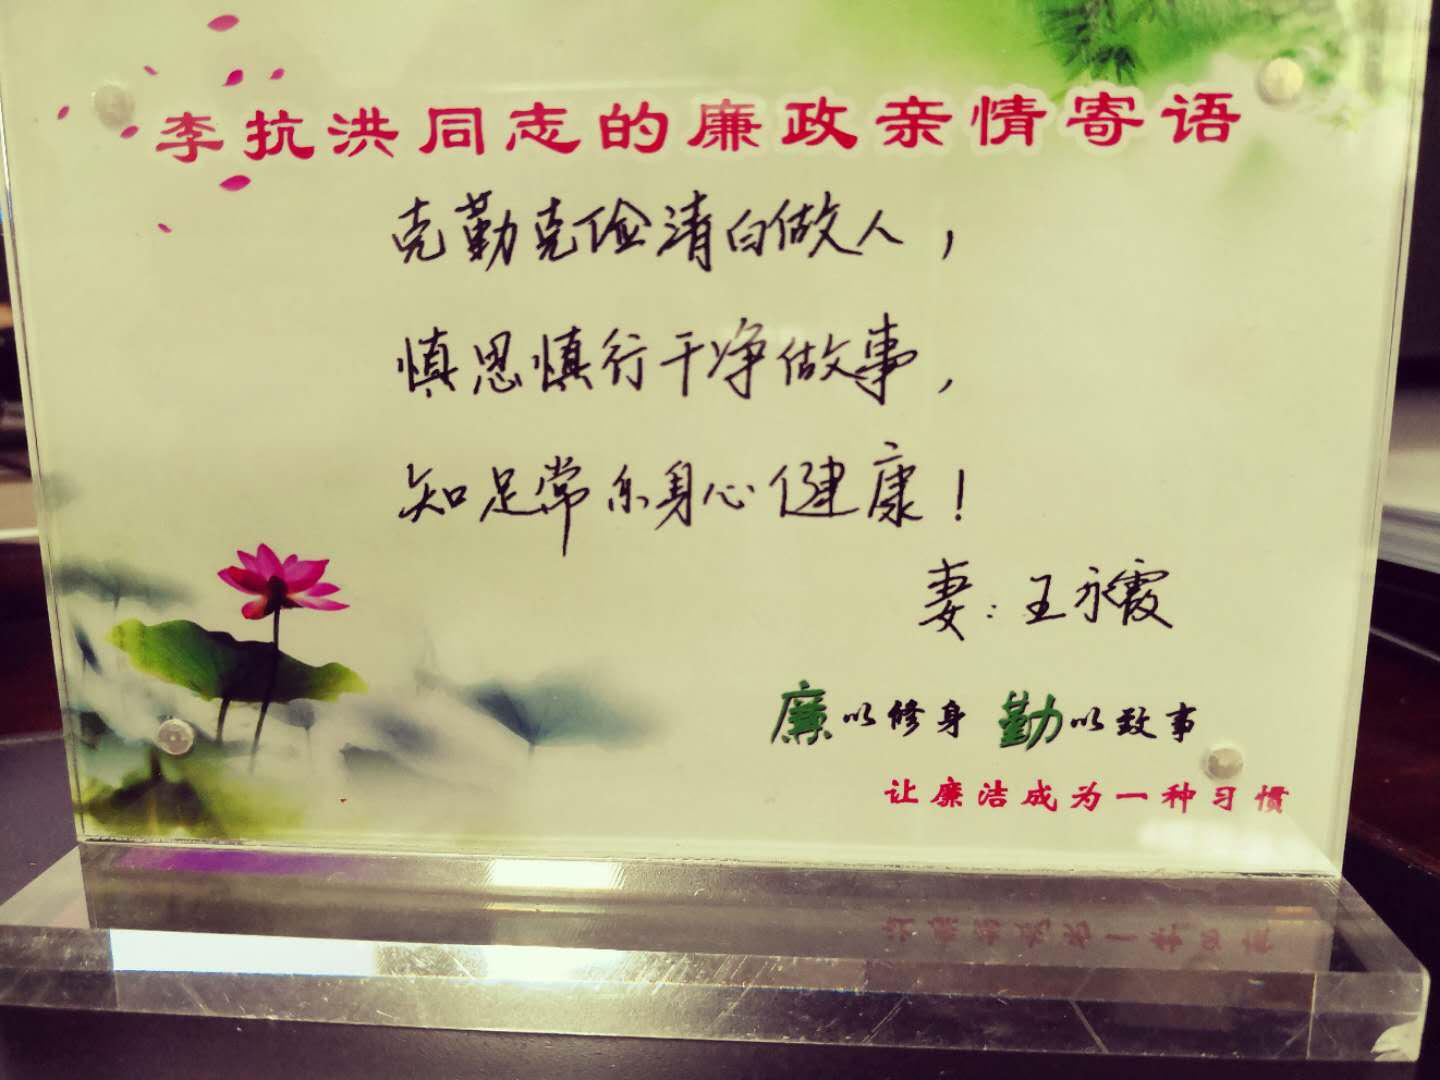 李抗洪同志的廉政亲情寄语
克勤克俭清白做人，
慎思慎行干净做事，
知足常乐身心健康！
妻：王永霞
廉以修身 勤以致事
让廉洁成为一种习惯